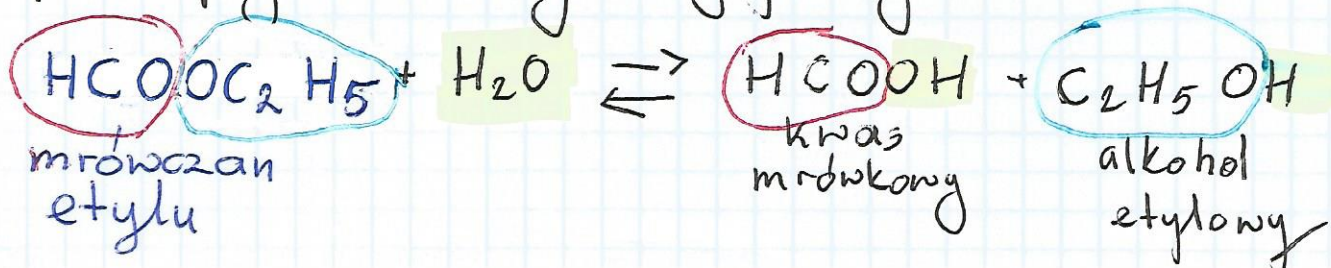 HCOOC₂H₅ + H₂O ⇌ HCOOH + C₂H₅OH
mrówczan etylu
kwas mrówkowy
alkohol etylowy